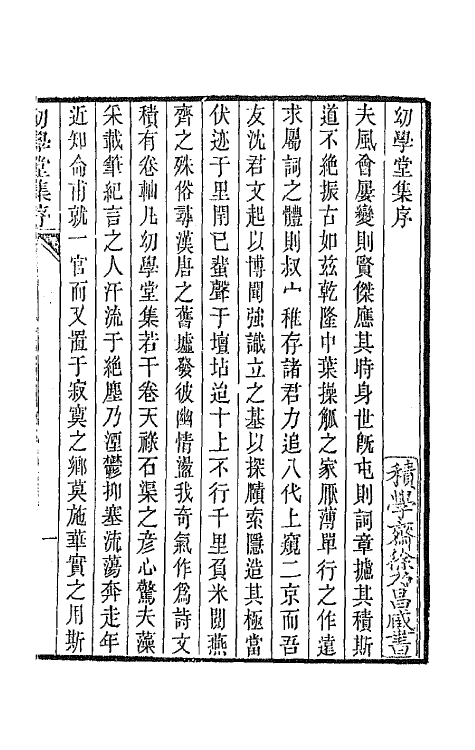 幼學堂集序
夫風會屢變則賢傑應其時身世旣屯則詞章攄其積斯
道不絶振古如玆乾隆中葉操觚之家厭薄單行之作遠
求屬詞之體則叔宀稚存諸君力追八代上窺二京而吾
友沈君文起以博聞強識立之基以探賾索隱造其極當
伏迹于里閈已蜚聲于壇坫迨十上不行千里負米閱燕
齊之殊俗尋漢唐之舊墟發彼幽情盪我奇氣作爲詩文
積有卷軸凡幼學堂集若干卷天祿石渠之彥心驚夫藻
采載筆紀言之人汗流于絶塵乃湮鬱抑塞流蕩奔走年
近知命甫就一官而又置于寂寞之鄉莫施華實之用斯
幼學堂集序
一
積學齋徐乃昌臧書